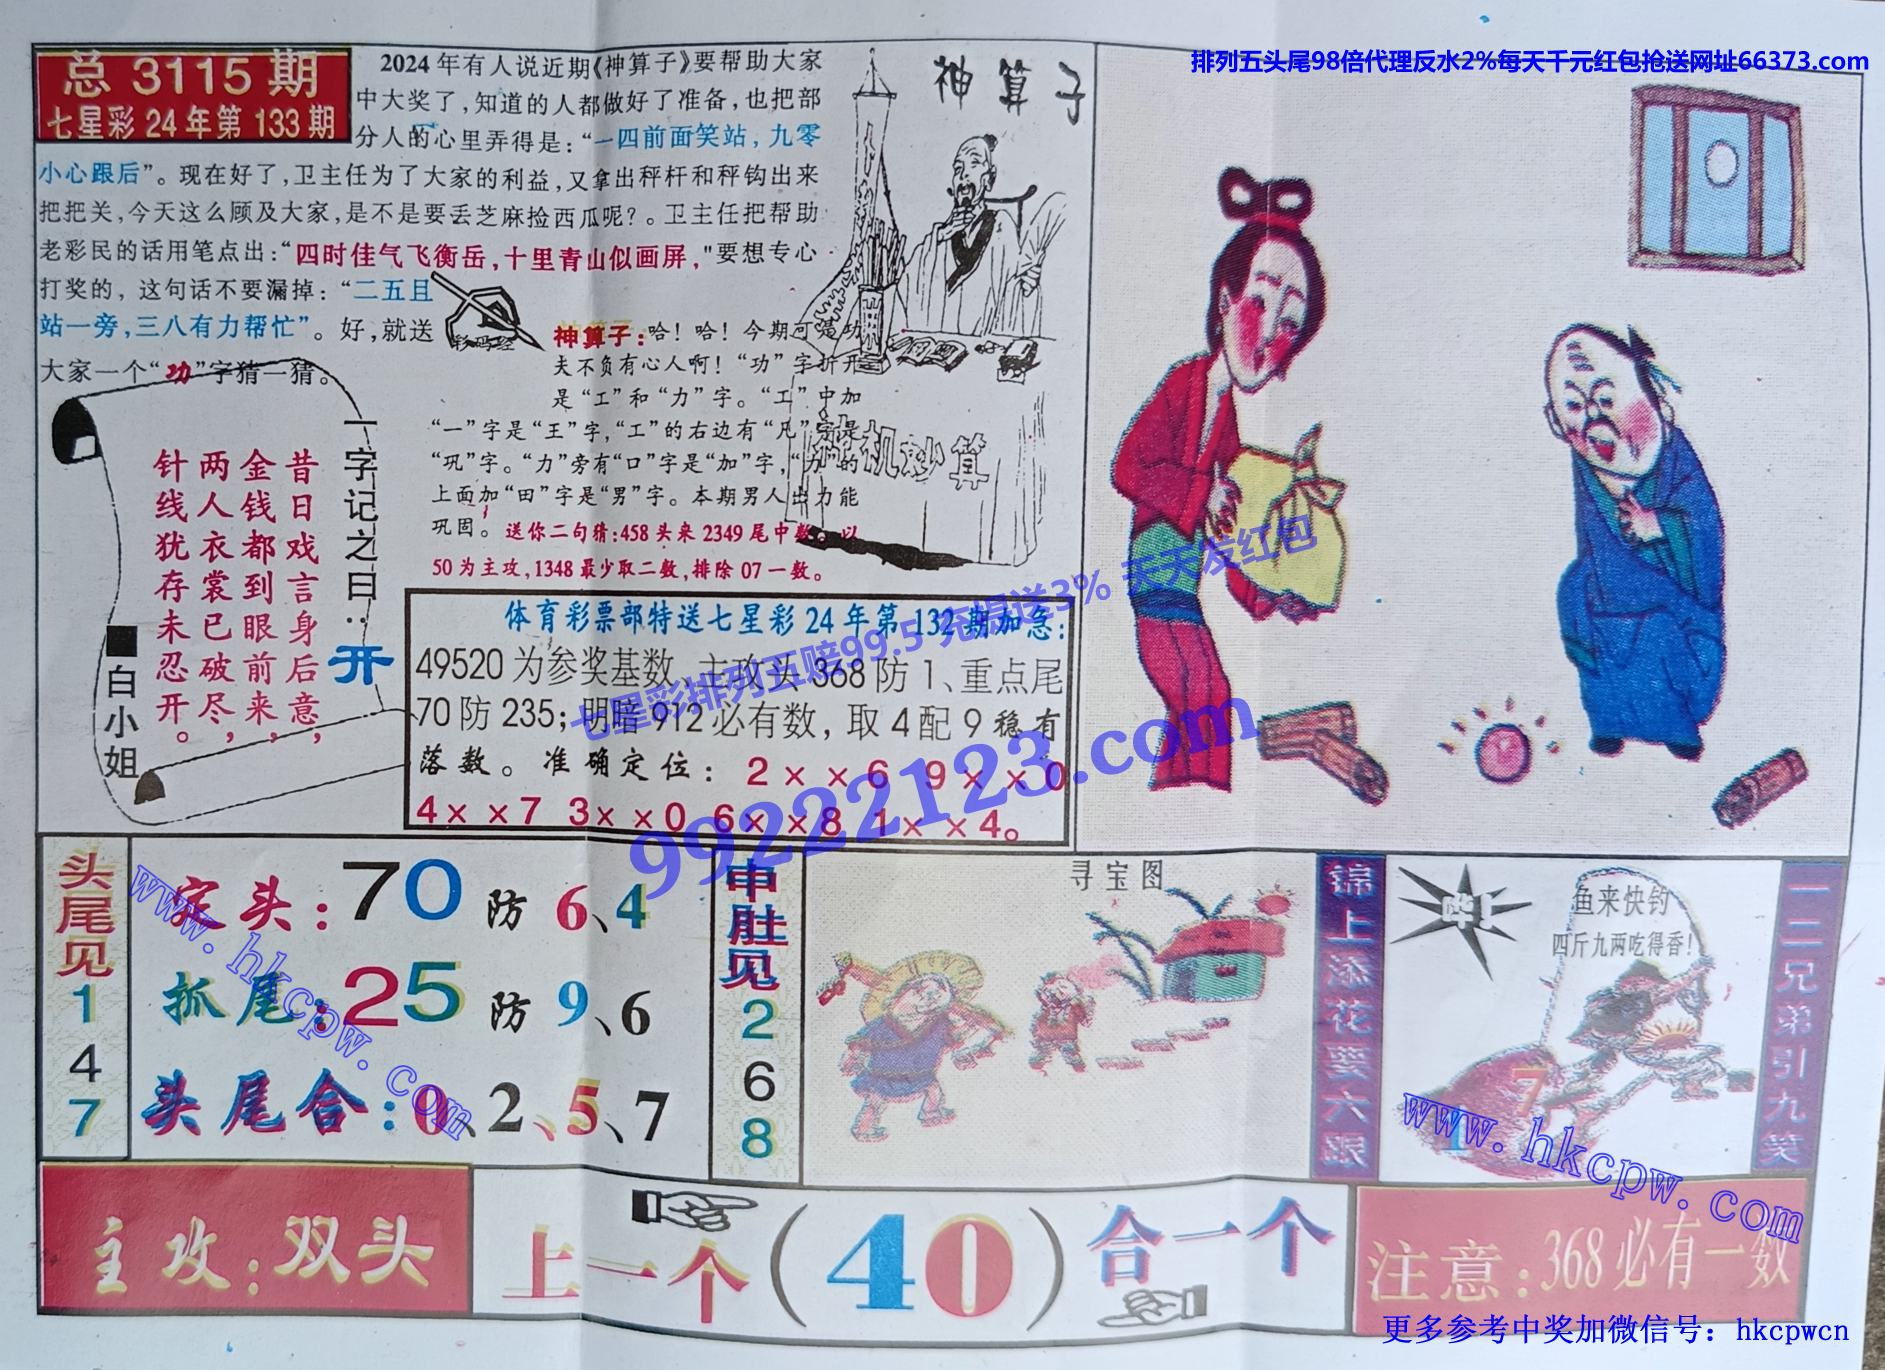 排列五头尾98倍代理反水2%每天千元红包抢送网址66373.com
总 3115 期
七星彩 24 年第 133 期
2024 年有人说近期《神算子》要帮助大家
中大奖了，知道的人都做好了准备，也把部
分人的心里弄得是：“一四前面笑站，九零
小心跟后”。现在好了，卫主任为了大家的利益，又拿出秤杆和秤钩出来
把把关，今天这么顾及大家，是不是要丢芝麻捡西瓜呢？。卫主任把帮助
老彩民的话用笔点出：“四时佳气飞衡岳，十里青山似画屏，"要想专心
打奖的，这句话不要漏掉：“二五且
站一旁，三八有力帮忙”。好，就送
大家一个“功”字猜一猜。
神算子
神算子：哈！哈！今期可谓功
夫不负有心人啊！“功”字折开
是“工”和“力”字。“工”中加
“一”字是“王”字，“工”的右边有“凡”字是
“巩”字。“力”旁有“口”字是“加”字，“力”的
上面加“田”字是“男”字。本期男人出力能
巩固。送你二句猜：458 头来 2349 尾中数。以
50 为主攻，1348 最少取二数，排除 07 一数。
机妙算
一字记之曰：开
昔日戏言身后意，
金钱都到眼前来，
两人衣裳已破尽，
针线犹存未忍开。
■白小姐
体育彩票部特送七星彩 24 年第 132 期加急：
49520 为参奖基数、主攻头 368 防 1、重点尾
70 防 235；明暗 912 必有数，取 4 配 9 稳有
落数。准确定位：2××6 9××0
4××7 3××0 6××8 1××4。
七星彩排列五赔99.5 充提送3% 天天发红包
99222123.com
头尾见
1
4
7
定头：70 防 6、4
抓尾：25 防 9、6
头尾合：0、2、5、7
申肚见
2
6
8
寻宝图
锦上添花要六跟
哗！
鱼来快钓
四斤九两吃得香！
7
1
一二兄弟引九笑
www.hkcpw.com
www.hkcpw.com
主攻：双头
上一个（40）合一个
注意：368 必有一数
更多参考中奖加微信号：hkcpwcn